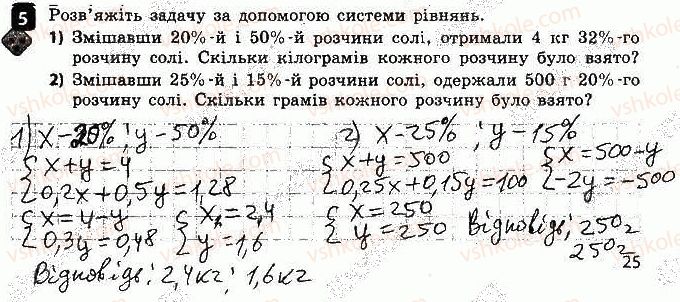 5 Розв'яжіть задачу за допомогою системи рівнянь.
1) Змішавши 20%-й і 50%-й розчини солі, отримали 4 кг 32%-го
розчину солі. Скільки кілограмів кожного розчину було взято?
2) Змішавши 25%-й і 15%-й розчини солі, одержали 500 г 20%-го
розчину солі. Скільки грамів кожного розчину було взято?
1) x-20%; y-50%
{x+y=4
{0,2x+0,5y=1,28
{x=4-y
{0,3y=0,48
{x=2,4
{y=1,6
Відповідь: 2,4кг; 1,6кг
2) x-25%; y=15%
{x+y=500
{0,25x+0,15y=100
{x=500-y
{-2y=-500
{x=250
{y=250
Відповідь; 250г
250г
25